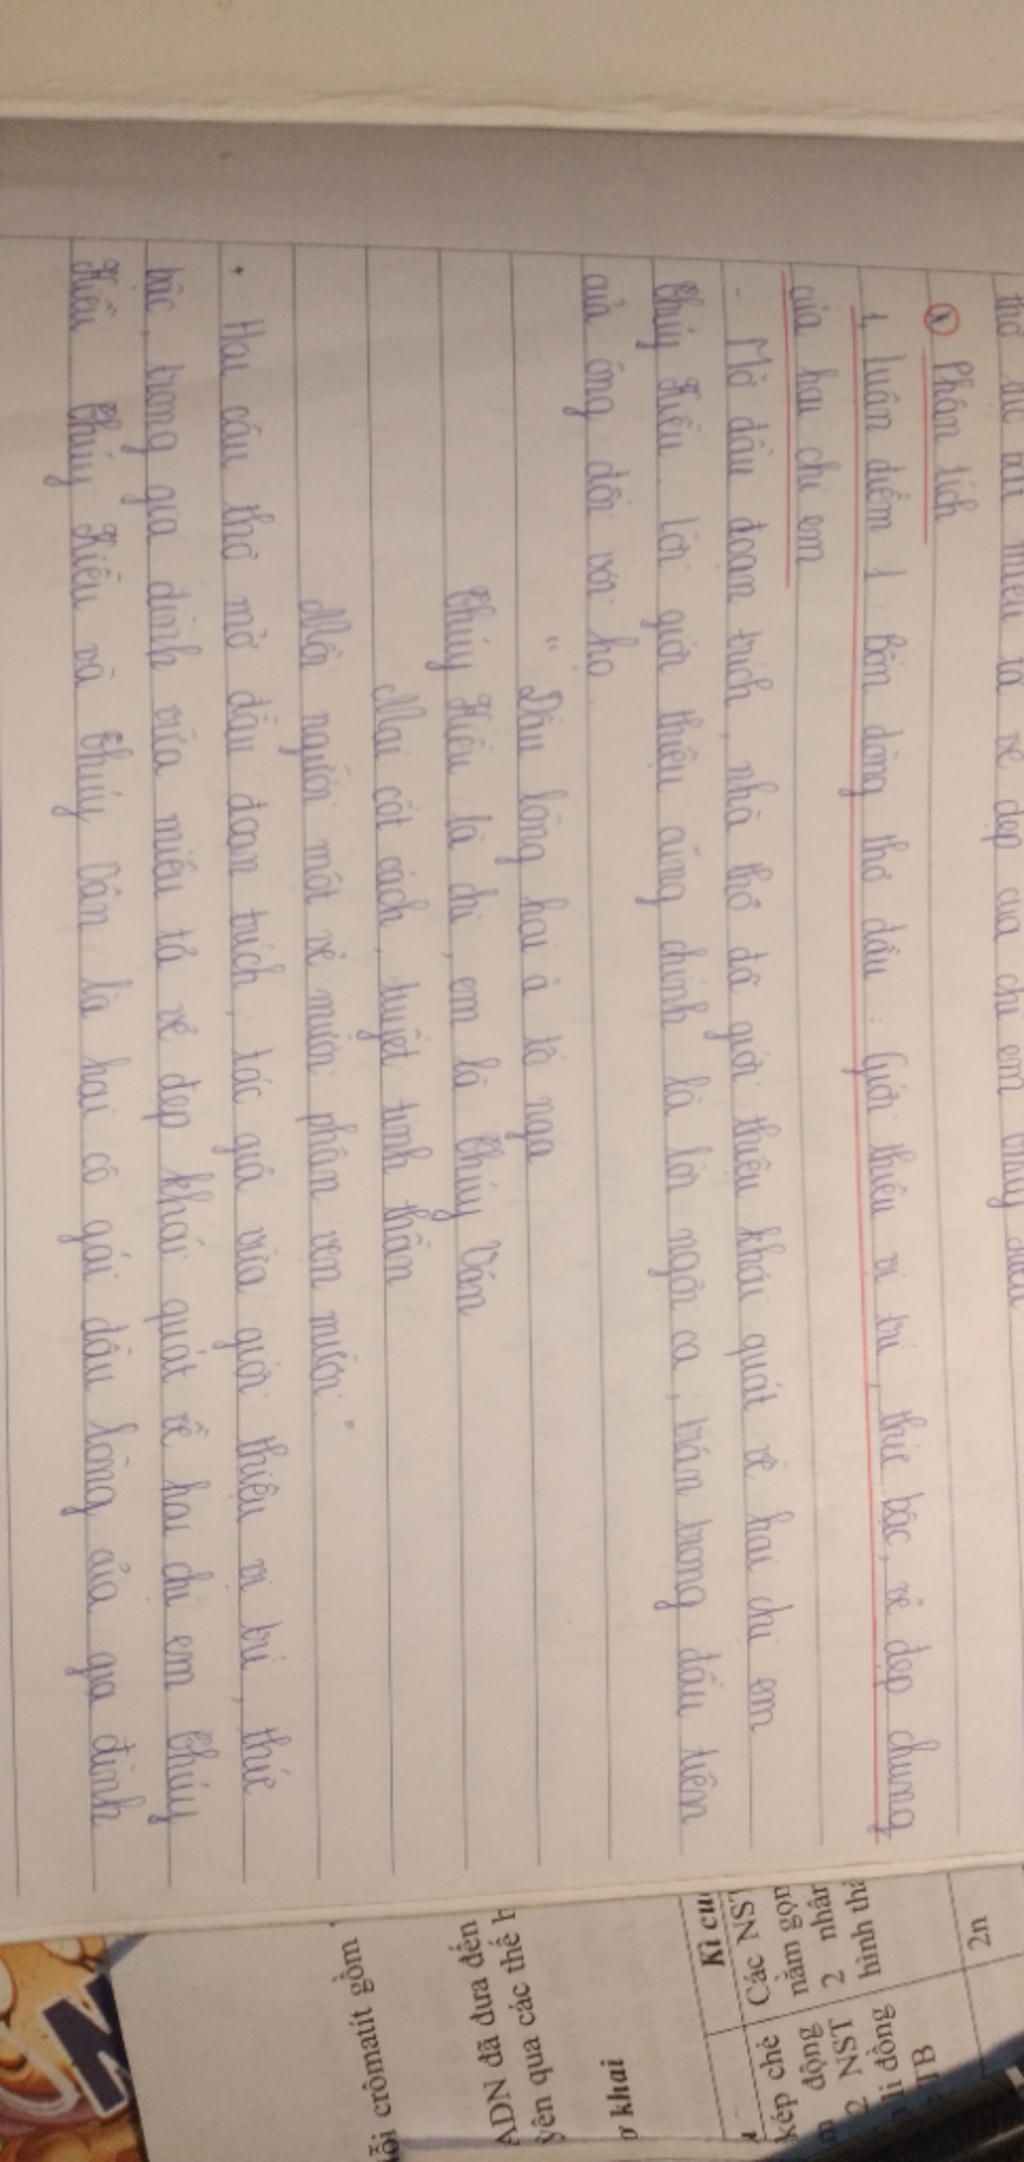 thơ
miêu tả vẻ đẹp của chị em
* Phân tích
1, Luận điểm 1: Bốn dòng thơ đầu: Giới thiệu vị trí, thức bậc, vẻ đẹp chung
của hai chị em
- Mở đầu đoạn trích, nhà thơ đã giới thiệu khái quát về hai chị em
Thúy Kiều. Lời giới thiệu cũng chính là lời ngợi ca, trân trọng đầu tiên
của ông đối với họ.
" Đầu lòng hai ả tố nga
Thúy Kiều là chị, em là Thúy Vân
Mai cốt cách, tuyết tinh thần
Mỗi người một vẻ mười phân vẹn mười."
+ Hai câu thơ mở đầu đoạn trích, tác giả vừa giới thiệu vị trí, thức
bậc, trong gia đình vừa miêu tả vẻ đẹp khái quát về hai chị em Thúy
Kiều. Thúy Kiều và Thúy Vân là hai cô gái đầu lòng của gia đình
crômatit gồm
ADN đã đưa đến
yên qua các thế h
khai
Kì cu
Các NST
nằm gọn
2 nhân
hình thá
2n
kép chẻ
động
2 NST
li đồng
TB